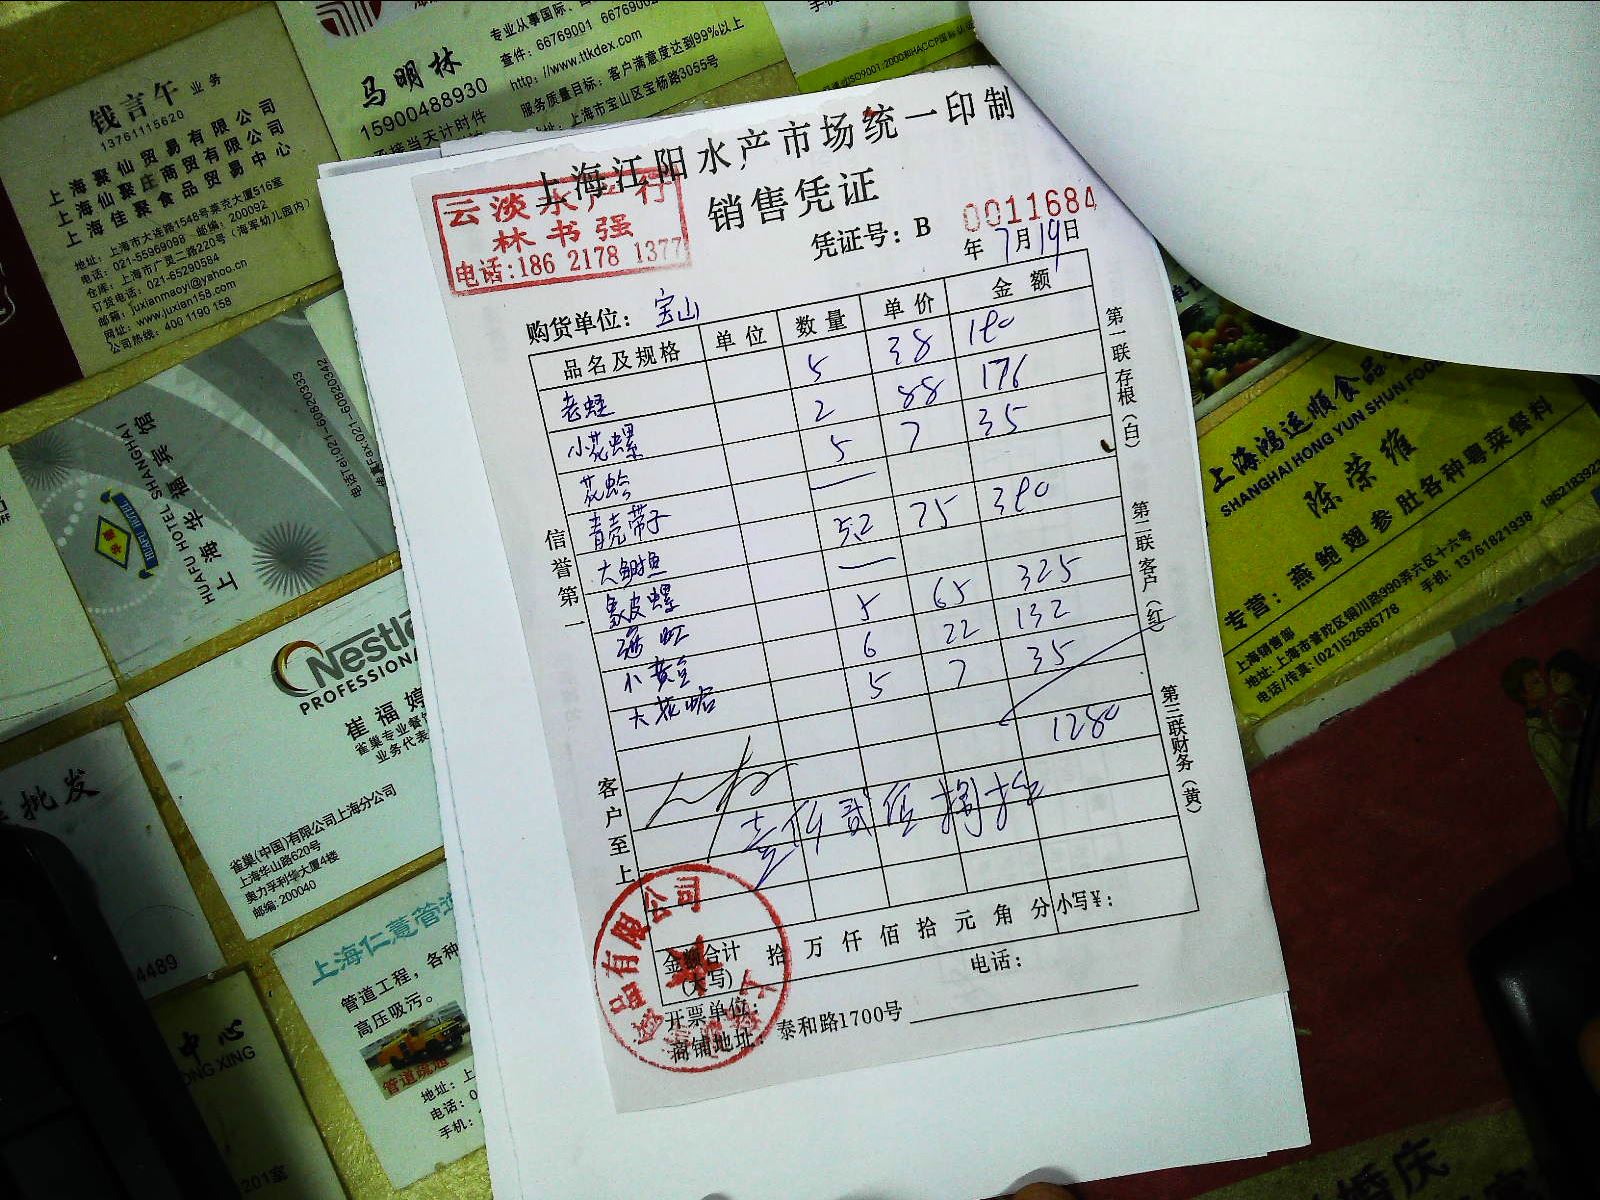 钱言午 业务
13761115620
上海聚仙贸易有限公司
上海仙聚庄商贸有限公司
上海佳聚食品贸易中心
地址：上海市大连路1548号莱克大厦516室
电话：021-55969098 邮编：200092
仓库：上海市广灵二路220号（海军幼儿园内）
订货电话：021-65290584
邮箱：juxianmaoyi@yahoo.cn
网址：www.juxian158.com
公司热线：400 1190 158
马明林
15900488930
承接当天计时件
专业从事国际、
查件：66769001
http://www.ttkdex.com
服务质量目标：客户满意度达到99%以上
地址：上海市宝山区宝杨路3055号
上海江阳水产市场统一印制
销售凭证
凭证号：B 0011684
年 7月19日
云淡水产行
林书强
电话:186 2178 1377
购货单位： 宝山
品名及规格 单位 数量 单价 金额
老蛏 5 38 190
小花螺 2 88 176
花蛤 5 7 35
青壳带子 —
大鲗鱼 52 75 390
象皮螺 —
5 65 325
小黄豆 6 22 132
大花蛤 5 7 35
1280
壹仟贰佰捌拾
信誉第一
客户至上
第一联存根（白）
第二联客户（红）
第三联财务（黄）
金额合计
(大写)
拾 万 仟 佰 拾 元 角 分 小写¥：
开票单位： 电话：
商铺地址：泰和路1700号
品有限公司
上海华福宾馆
HUAFU HOTEL SHANGHAI
HUAFU
电话Tel:021-60820333
Fax:021-60820342
Nestlé
PROFESSIONAL
崔福婷
雀巢专业餐饮
业务代表
雀巢(中国)有限公司上海分公司
上海华山路620号
奥力孚利华大厦4楼
邮编：200040
批发
4489
中心
ONG XING
201室
上海仁薏管道
管道工程，各种
高压吸污。
管道疏通
地址：上
电话：0
手机：
上海鸿运顺食品
SHANGHAI HONG YUN SHUN FOOD
陈荣雄
专营：燕鲍翅参肚各种粤菜餐料
上海销售部
地址：上海市普陀区铜川路990弄六区十六号
电话/传真：(021)52686776 手机：13761821938
婚庆